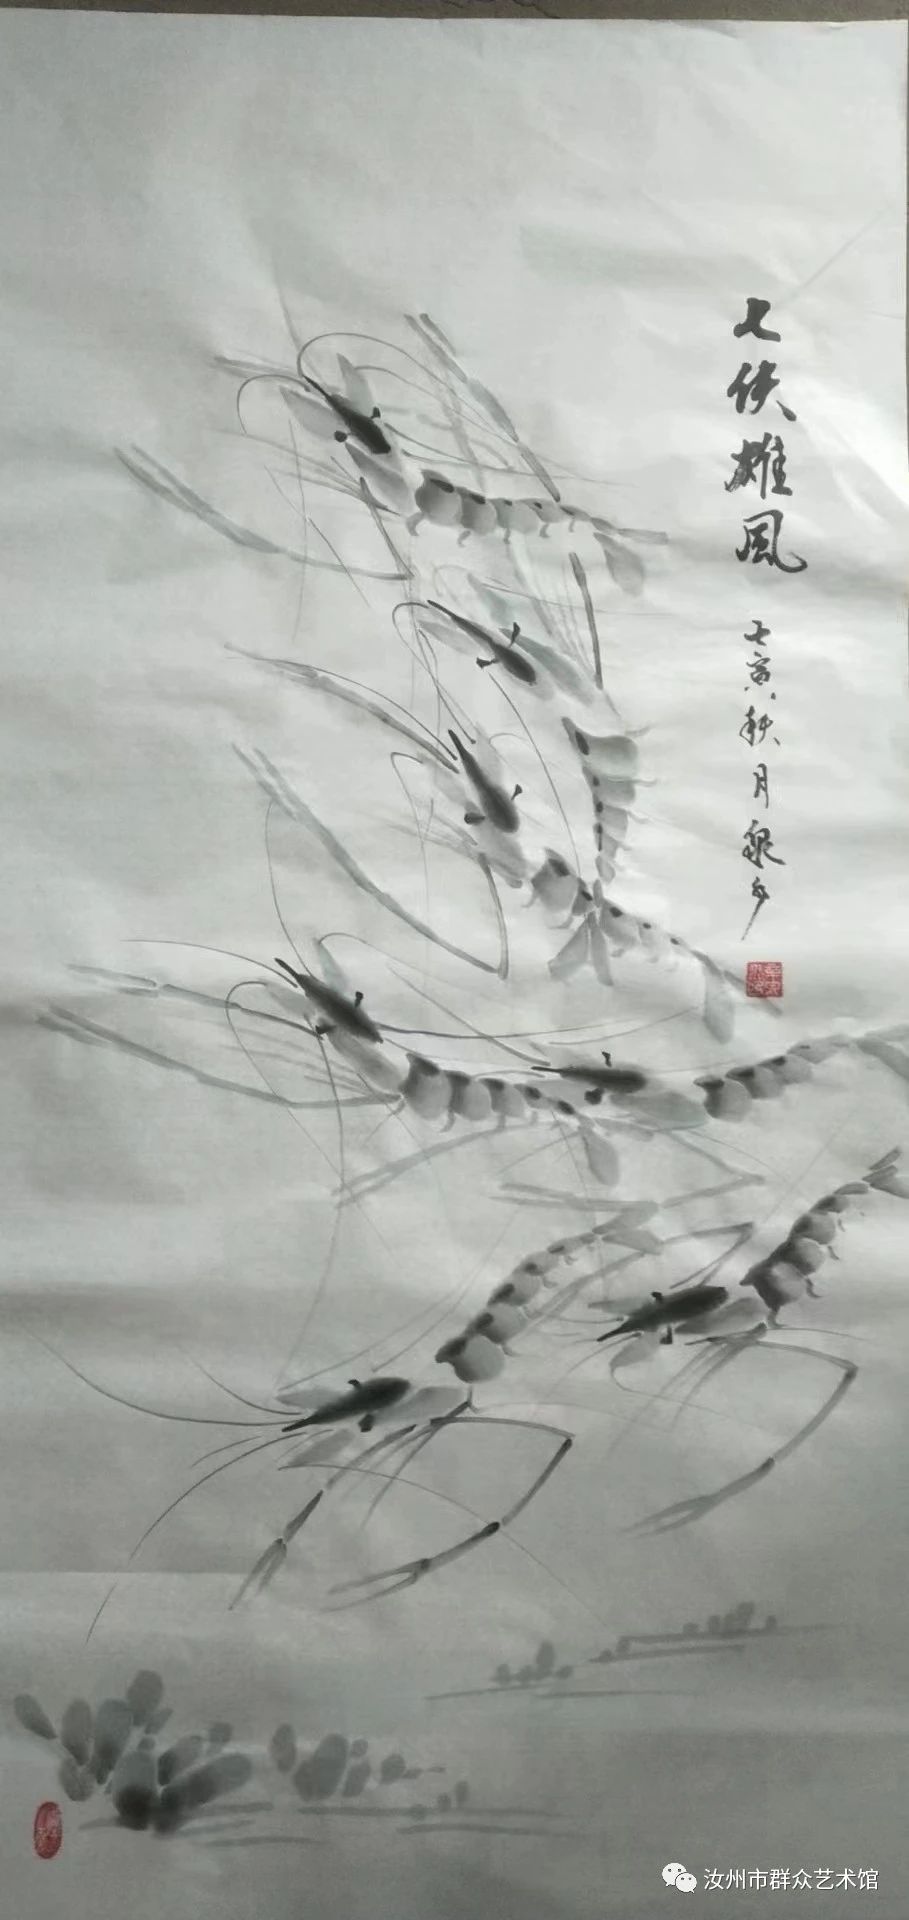 七侠雄风
壬寅秋月泉乡
汝州市群众艺术馆